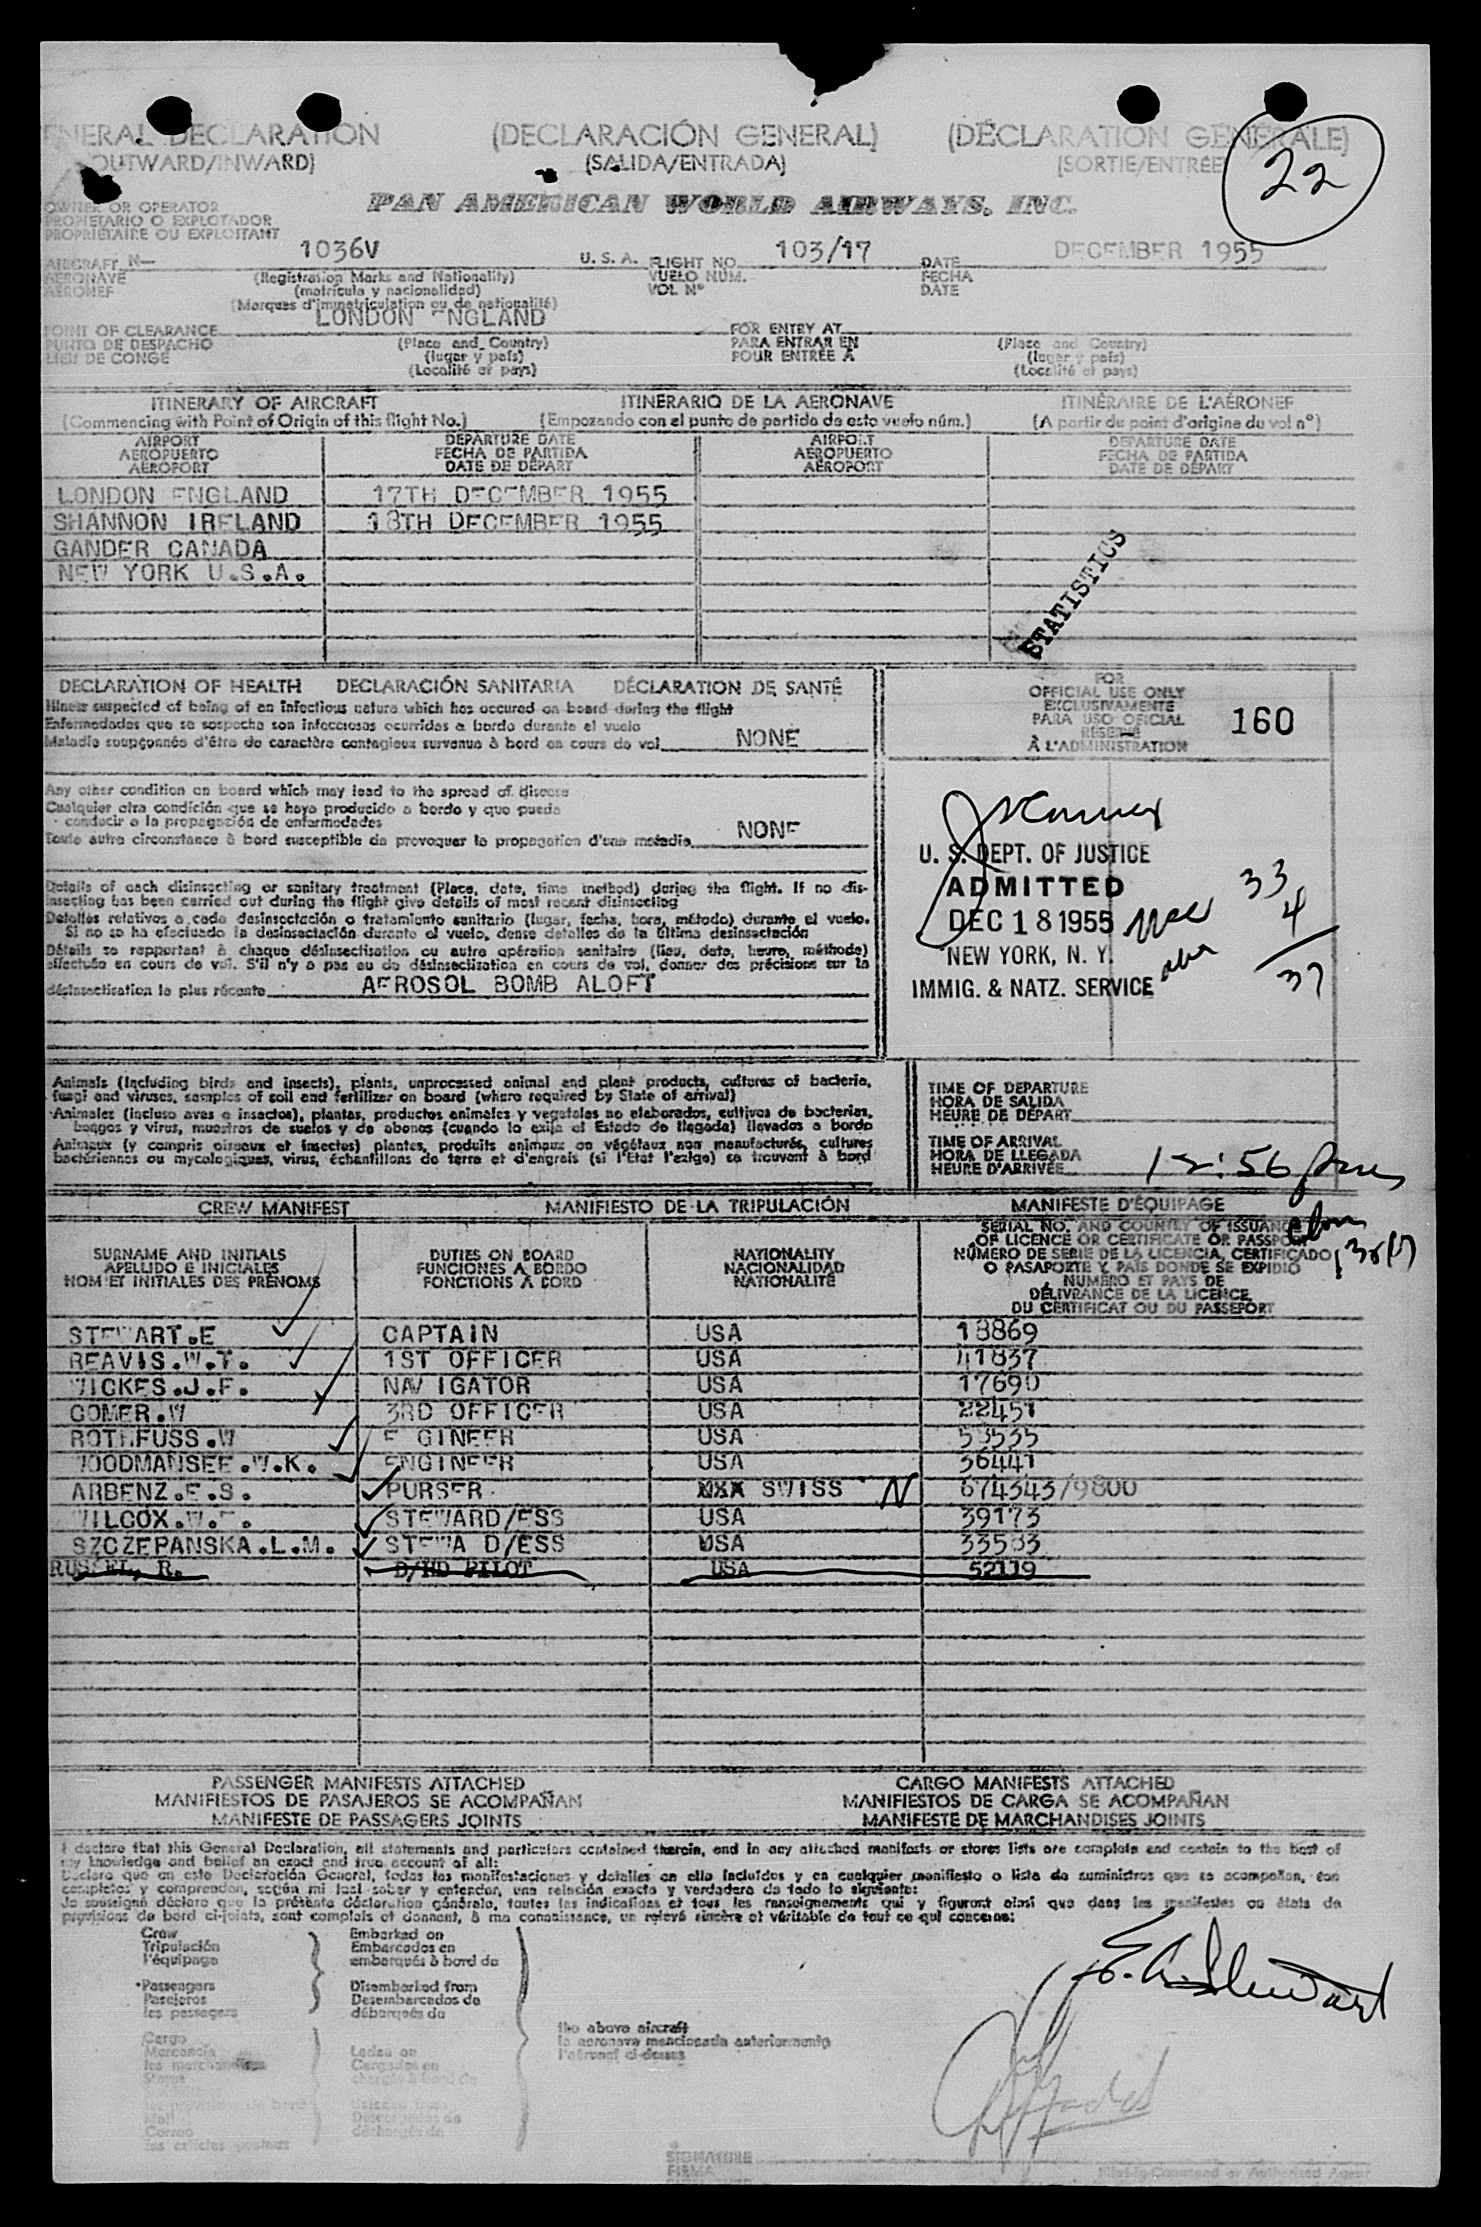 GENERAL DECLARATION (DECLARACIÓN GENERAL) (DÉCLARATION GÉNÉRALE)
(OUTWARD/INWARD) (SALIDA/ENTRADA) (SORTIE/ENTRÉE)
22
OWNER OR OPERATOR PAN AMERICAN WORLD AIRWAYS, INC.
PROPIETARIO O EXPLOTADOR
PROPRIÉTAIRE OU EXPLOITANT
AIRCRAFT N— 1036V U. S. A. FLIGHT NO. 103/17 DATE DECEMBER 1955
AERONAVE (Registration Marks and Nationality) VUELO NUM. FECHA
AÉRONEF (matrícula y nacionalidad) VOL Nº DATE
(Marques d'immatriculation ou de nationalité)
LONDON ENGLAND
POINT OF CLEARANCE FOR ENTRY AT
PUNTO DE DESPACHO (Place and Country) PARA ENTRAR EN (Place and Country)
LIEU DE CONGÉ (lugar y país) POUR ENTRÉE À (lugar y país)
(Localité et pays) (Localité et pays)
ITINERARY OF AIRCRAFT ITINERARIO DE LA AERONAVE ITINÉRAIRE DE L'AÉRONEF
(Commencing with Point of Origin of this flight No.) (Empezando con el punto de partida de este vuelo núm.) (A partir du point d'origine du vol nº)
AIRPORT DEPARTURE DATE AIRPORT DEPARTURE DATE
AEROPUERTO FECHA DE PARTIDA AEROPUERTO FECHA DE PARTIDA
AÉROPORT DATE DE DÉPART AÉROPORT DATE DE DÉPART
LONDON ENGLAND 17TH DECEMBER 1955
SHANNON IRELAND 18TH DECEMBER 1955
GANDER CANADA
NEW YORK U.S.A.
STATISTICS
DECLARATION OF HEALTH DECLARACIÓN SANITARIA DÉCLARATION DE SANTÉ
Illness suspected of being of an infectious nature which has occured on board during the flight
Enfermedades que se sospecha son infecciosas ocurridas a bordo durante el vuelo
Maladie soupçonnée d'être de caractère contagieux survenue à bord en cours de vol NONE
Any other condition on board which may lead to the spread of disease
Cualquier otra condición que se haya producido a bordo y que pueda
conducir a la propagación de enfermedades
Toute autre circonstance à bord susceptible de provoquer la propagation d'une maladie NONE
Details of each disinsecting or sanitary treatment (Place, date, time method) during the flight. If no dis-
insecting has been carried out during the flight give details of most recent disinsecting
Detalles relativos a cada desinsectación o tratamiento sanitario (lugar, fecha, hora, método) durante el vuelo.
Si no se ha efectuado la desinsectación durante el vuelo, dense detalles de la última desinsectación
Détails se rapportant à chaque désinsectisation ou autre opération sanitaire (lieu, date, heure, méthode)
effectuée en cours de vol. S'il n'y a pas eu de désinsectisation en cours de vol, donner des précisions sur la
désinsectisation la plus récente AEROSOL BOMB ALOFT
FOR
OFFICIAL USE ONLY
EXCLUSIVAMENTE
PARA USO OFICIAL
RÉSERVÉ
À L'ADMINISTRATION
160
U. S. DEPT. OF JUSTICE
ADMITTED
DEC 18 1955
NEW YORK, N. Y.
IMMIG. & NATZ. SERVICE
33
4
37
Animals (including birds and insects), plants, unprocessed animal and plant products, cultures of bacteria,
fungi and viruses, samples of soil and fertilizer on board (where required by State of arrival)
Animales (incluso aves e insectos), plantas, productos animales y vegetales no elaborados, cultivos de bacterias,
hongos y virus, muestras de suelos y de abonos (cuando lo exija el Estado de llegada) llevados a bordo
Animaux (y compris oiseaux et insectes) plantes, produits animaux ou végétaux non manufacturés, cultures
bactériennes ou mycologiques, virus, échantillons de terre et d'engrais (si l'État l'exige) se trouvant à bord
TIME OF DEPARTURE
HORA DE SALIDA
HEURE DE DÉPART
TIME OF ARRIVAL
HORA DE LLEGADA
HEURE D'ARRIVÉE 12:56
CREW MANIFEST MANIFIESTO DE LA TRIPULACIÓN MANIFESTE D'ÉQUIPAGE
SURNAME AND INITIALS
APELLIDO E INICIALES
NOM ET INITIALES DES PRÉNOMS
DUTIES ON BOARD
FUNCIONES A BORDO
FONCTIONS À BORD
NATIONALITY
NACIONALIDAD
NATIONALITÉ
SERIAL NO. AND COUNTRY OF ISSUANCE
OF LICENCE OR CERTIFICATE OR PASSPORT
NÚMERO DE SERIE DE LA LICENCIA, CERTIFICADO
O PASAPORTE Y PAIS DONDE SE EXPIDIÓ
NUMÉRO ET PAYS DE
DÉLIVRANCE DE LA LICENCE,
DU CERTIFICAT OU DU PASSEPORT
STEWART.E CAPTAIN USA 18869
REAVIS.W.T. 1ST OFFICER USA 41837
WICKES.J.F. NAVIGATOR USA 17690
GOMER.W 3RD OFFICER USA 22451
ROTHFUSS.W E GINEER USA 53535
WOODMANSEE.W.K. ENGINEER USA 36441
ARBENZ.E.S. PURSER SWISS N 674343/9800
WILCOX.W. STEWARD/ESS USA 39173
SZCZEPANSKA.L.M. STEWA D/ESS USA 33583
RUSSEL, R. D/HD PILOT USA 52119
PASSENGER MANIFESTS ATTACHED CARGO MANIFESTS ATTACHED
MANIFIESTOS DE PASAJEROS SE ACOMPAÑAN MANIFIESTOS DE CARGA SE ACOMPAÑAN
MANIFESTE DE PASSAGERS JOINTS MANIFESTE DE MARCHANDISES JOINTS
I declare that this General Declaration, all statements and particulars contained therein, and in any attached manifests or stores lists are complete and contain to the best of
my knowledge and belief an exact and true account of all:
Declaro que en esta Declaración General, todas las manifestaciones y detalles en ella incluídos y en cualquier manifiesto o lista de suministros que se acompañan, son
completos y comprenden, según mi leal saber y entender, una relación exacta y verdadera de todo lo siguiente:
Je soussigné déclare que la présente déclaration générale, toutes les indications et tous les renseignements qui y figurent ainsi que dans les manifestes ou états de
provisions de bord ci-joints, sont complets et donnent, à ma connaissance, un relevé sincère et véritable de tout ce qui concerne:
Crew Embarked on
Tripulación Embarcados en
l'équipage embarqués à bord de
Passengers Disembarked from
Pasajeros Desembarcados de
les passagers débarqués de
the above aircraft
la aeronave mencionada anteriormente
l'aéronef ci-dessus
Cargo
Mercancía Laden on
les marchandises Cargados en
Stores chargés à bord de
Mail
Correo
les articles postaux
E. A. Stewart
SIGNATURE
FIRMA
Pilot-in-Command or Authorized Agent